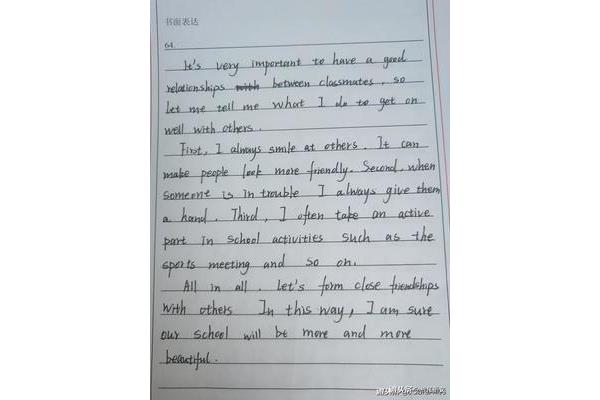 书面表达
64.
It's very important to have a good
relationships with between classmates, so
let me tell me what I do to get on
well with others.
First, I always smile at others. It can
make people look more friendly. Second, when
someone is in trouble I always give them
a hand. Third, I often take an active
part in school activities such as the
sports meeting and so on.
All in all. Let's form close friendships
with others In this way, I am sure
our school will be more and more
beautiful.